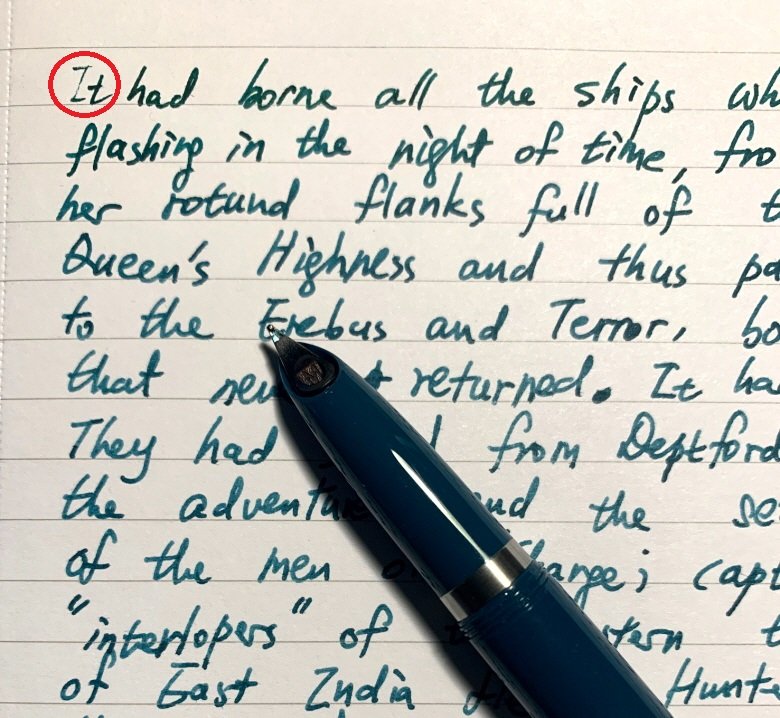 It had borne all the ships wh
flashing in the night of time, fro
her rotund flanks full of t
Queen's Highness and thus pa
to the Erebus and Terror, bo
that returned. It ha
They had from Deptford
the adventu nd the se
of the men o hange; capt
"interlopers" of t stern t
of East India fl Hunt